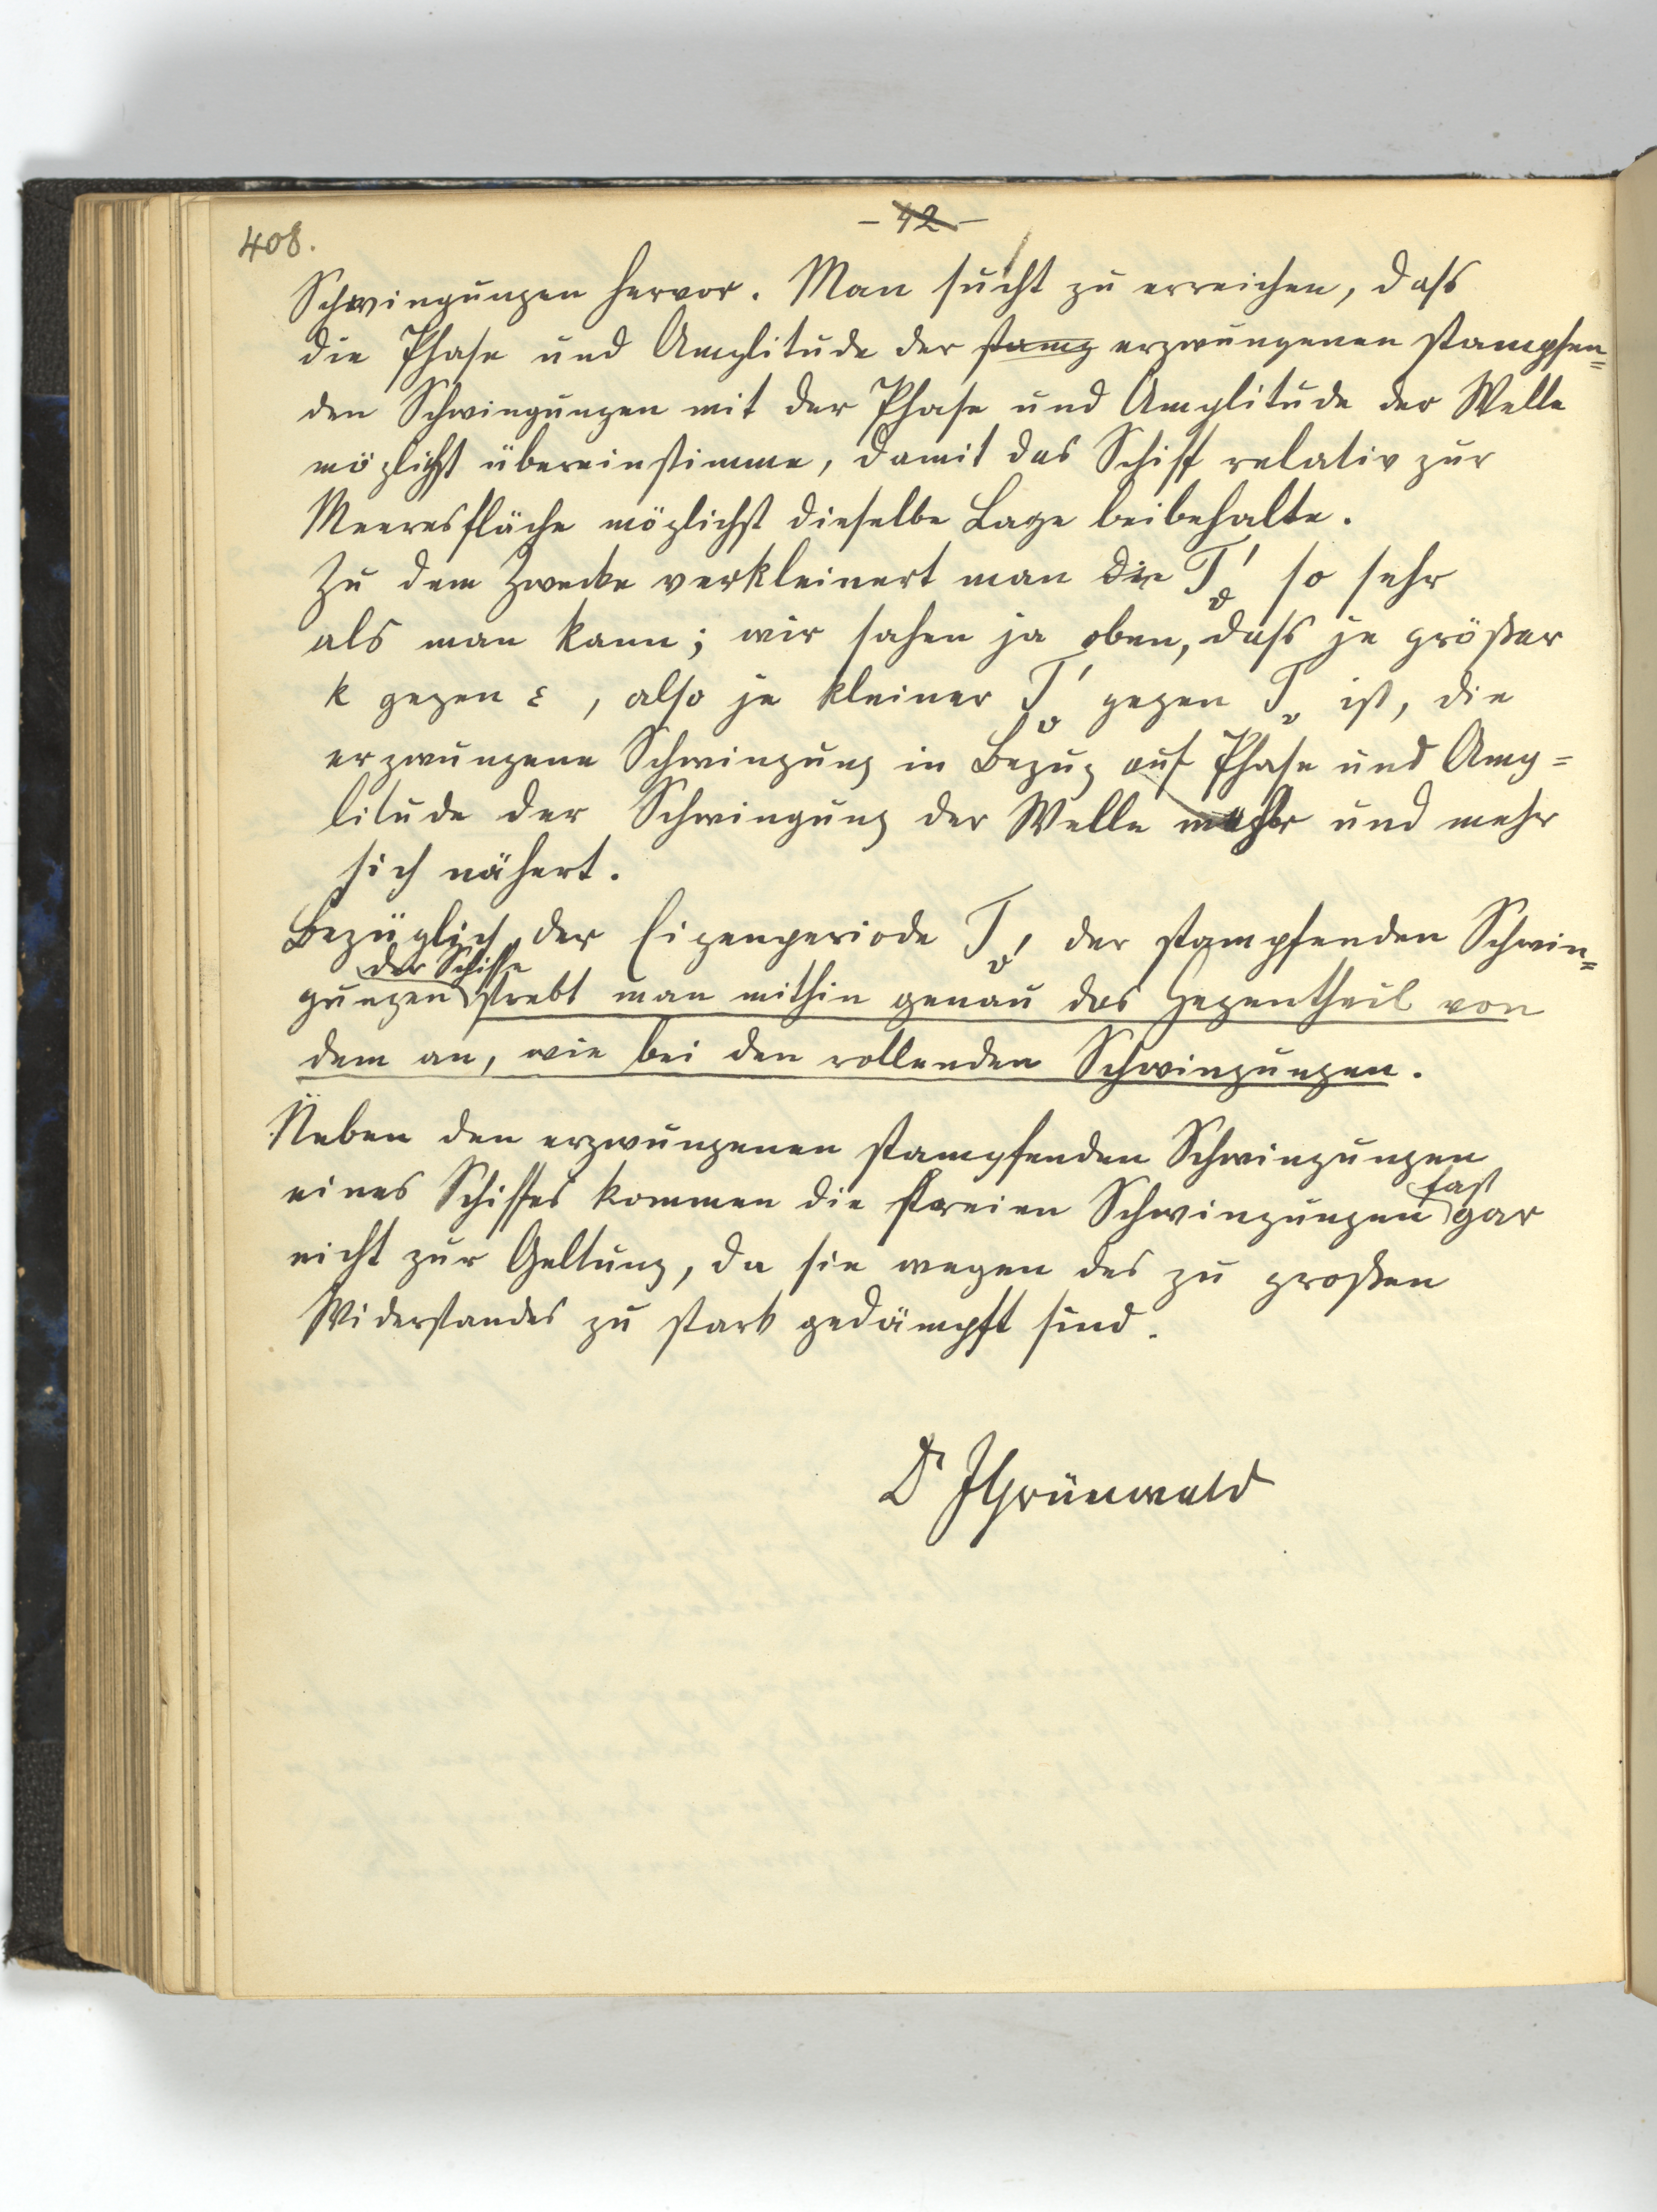 408.
- 42 -
Schwingungen hervor. Man sucht zu erreichen, dass
die Phase und Amplitude der stamp erzwungenen stampfen=
den Schwingungen mit der Phase und Amplitude der Welle
möglichst übereinstimme, damit das Schiff relativ zur
Meeresfläche möglichst dieselbe Lage beibehalte.
Zu dem Zwecke verkleinert man die T₀' so sehr
als man kann; wir sahen ja oben, dass je größer
k gegen ε, also je kleiner T₀' gegen T₀ ist, die
erzwungene Schwingung in Bezug auf Phase und Amp=
litude der Schwingung der Welle mehr und mehr
sich nähert.
Bezüglich der Eigenperiode T₀' der stampfenden Schwin=
der Schiffe
gungen strebt man mithin genau das Gegentheil von
dem an, wie bei den rollenden Schwingungen.
Neben den erzwungenen stampfenden Schwingungen
eines Schiffes kommen die freien Schwingungen fast gar
nicht zur Geltung, da sie wegen des zu großen
Widerstandes zu stark gedämpft sind.
Dr JGrünwald